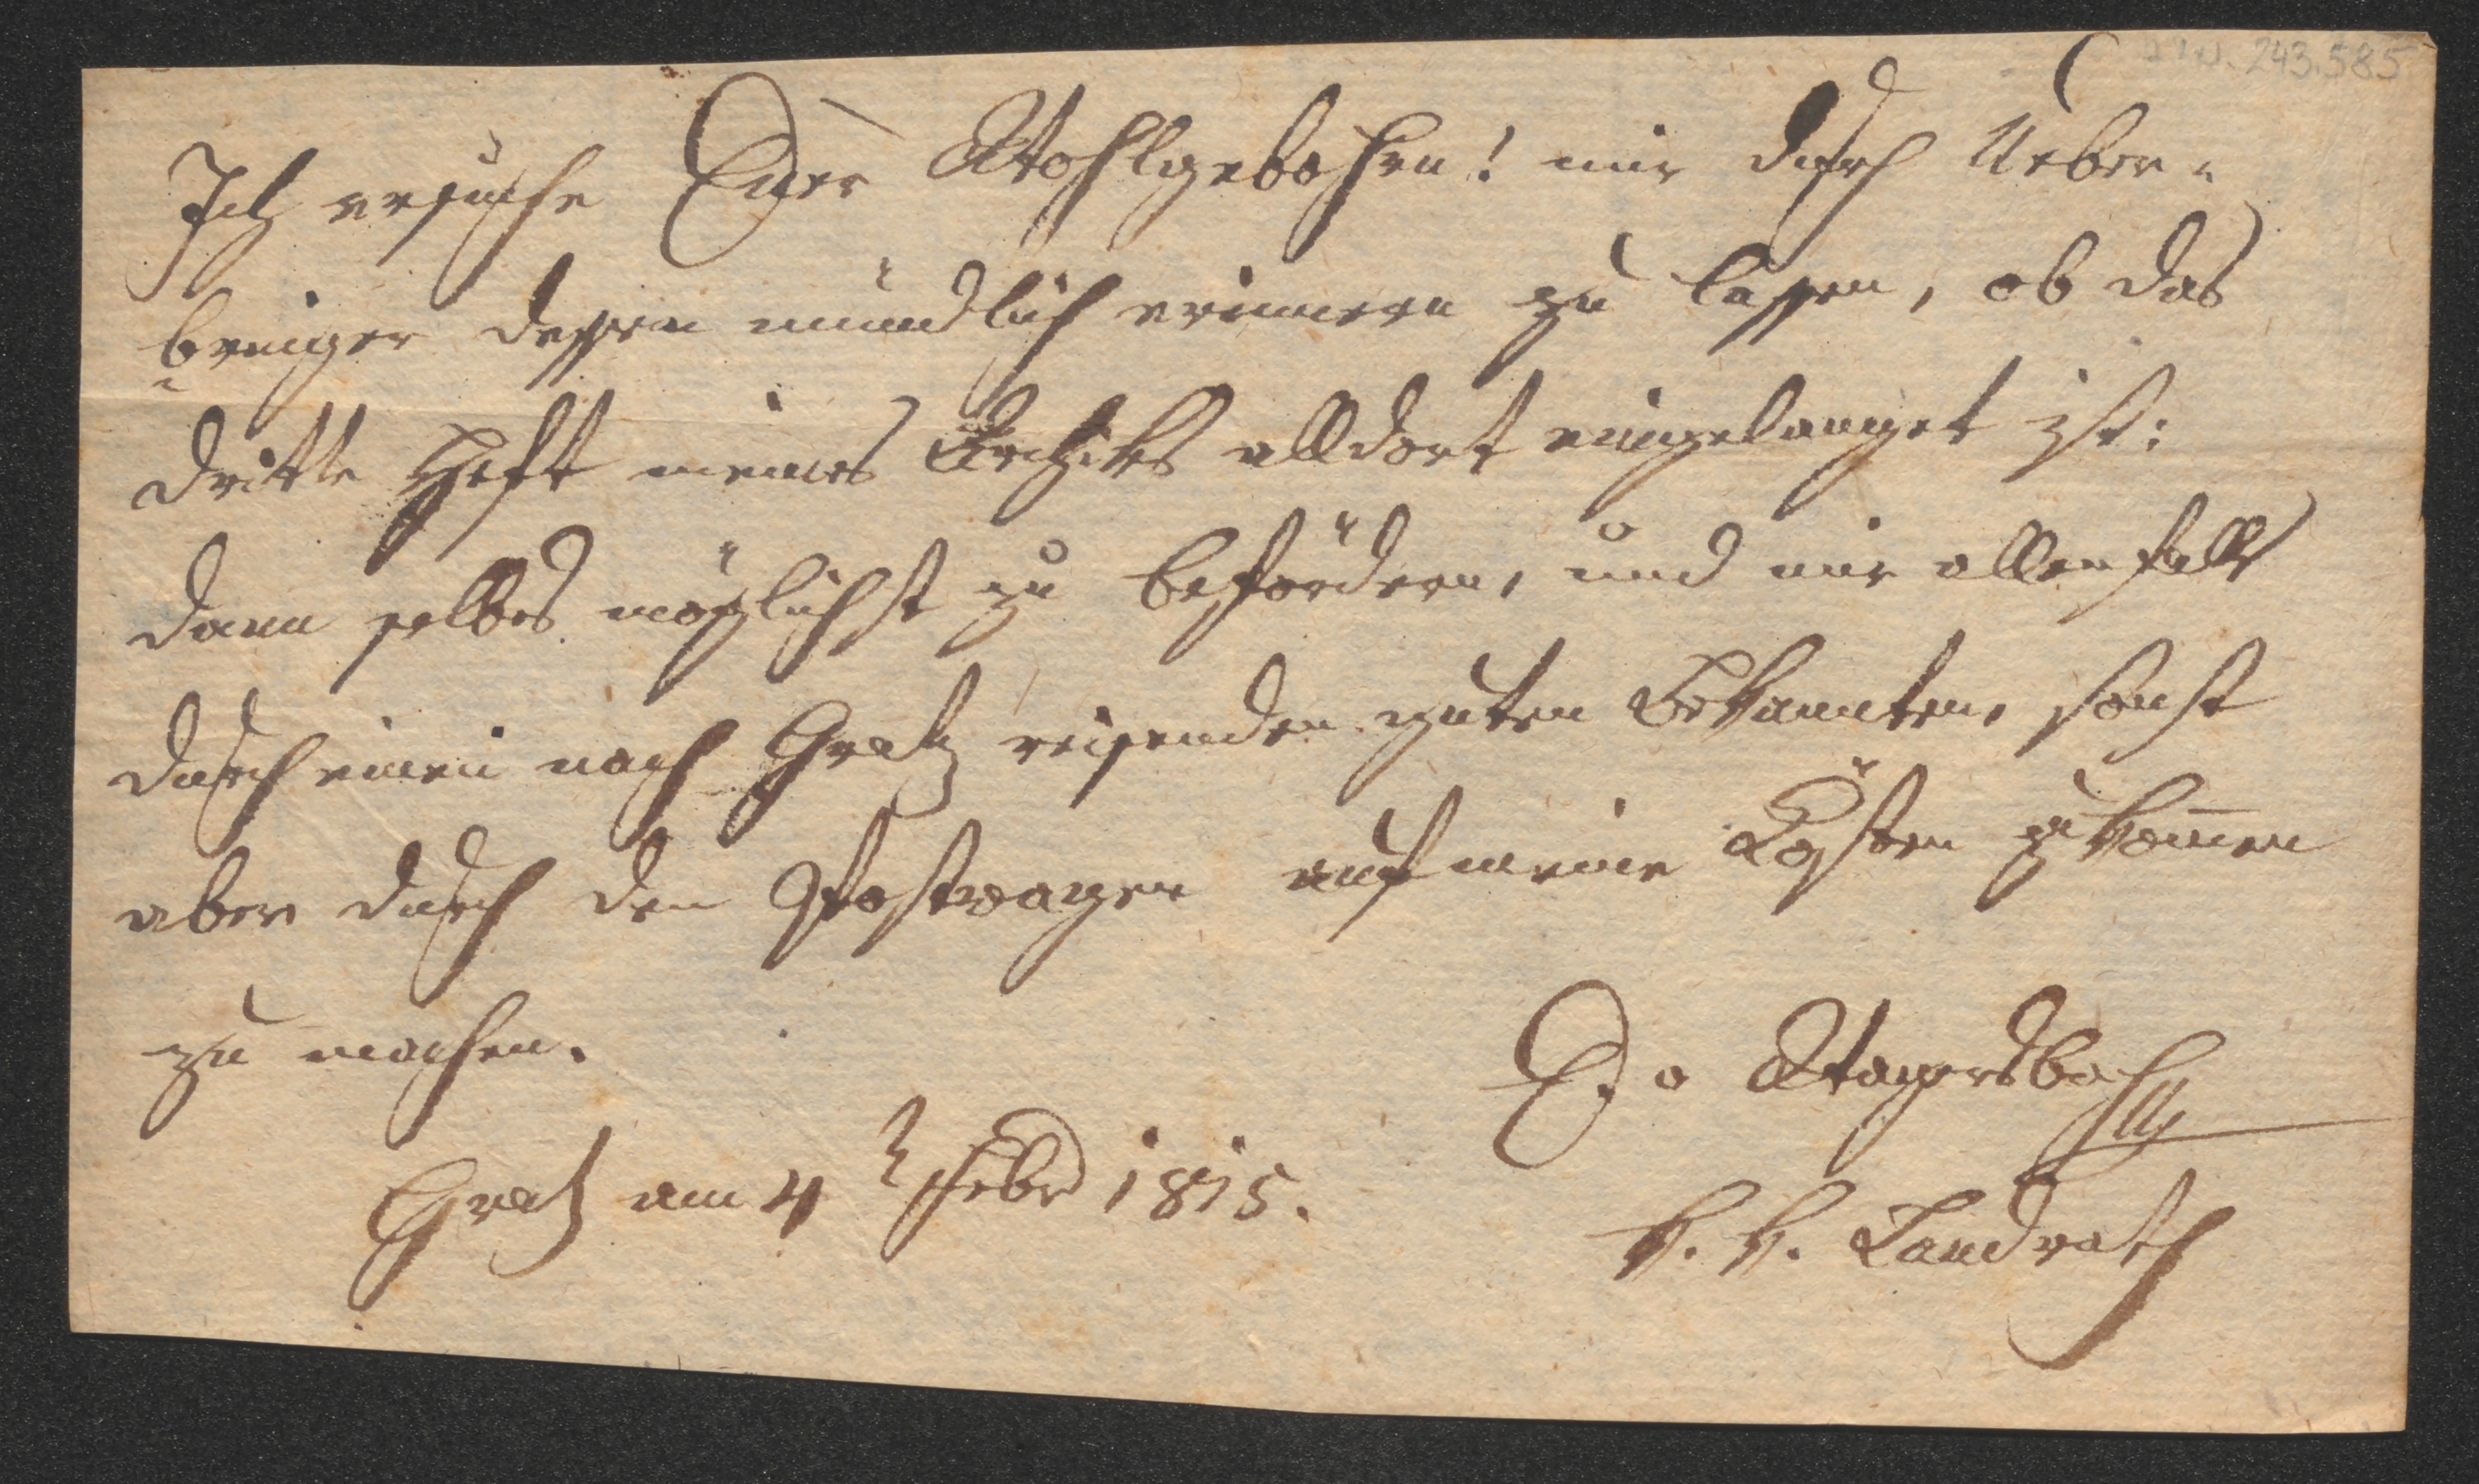 I.N. 243.585
Ich ersuche Euer Wohlgebohren! mir durch Ueber-
bringer dessen mündlich erinnern zu lassen, ob das
dritte Heft meines Archivs alldort eingelanget ist:
dann selbes möglichst zu befördern, und mir allenfalls
durch einen nach Gratz reisenden guten Bekannten, sonst
aber durch den Postwagen auf meine Kösten zukom̄en
zu machen.
Gratz am 4 Febr 1815.
k. k. Landrath